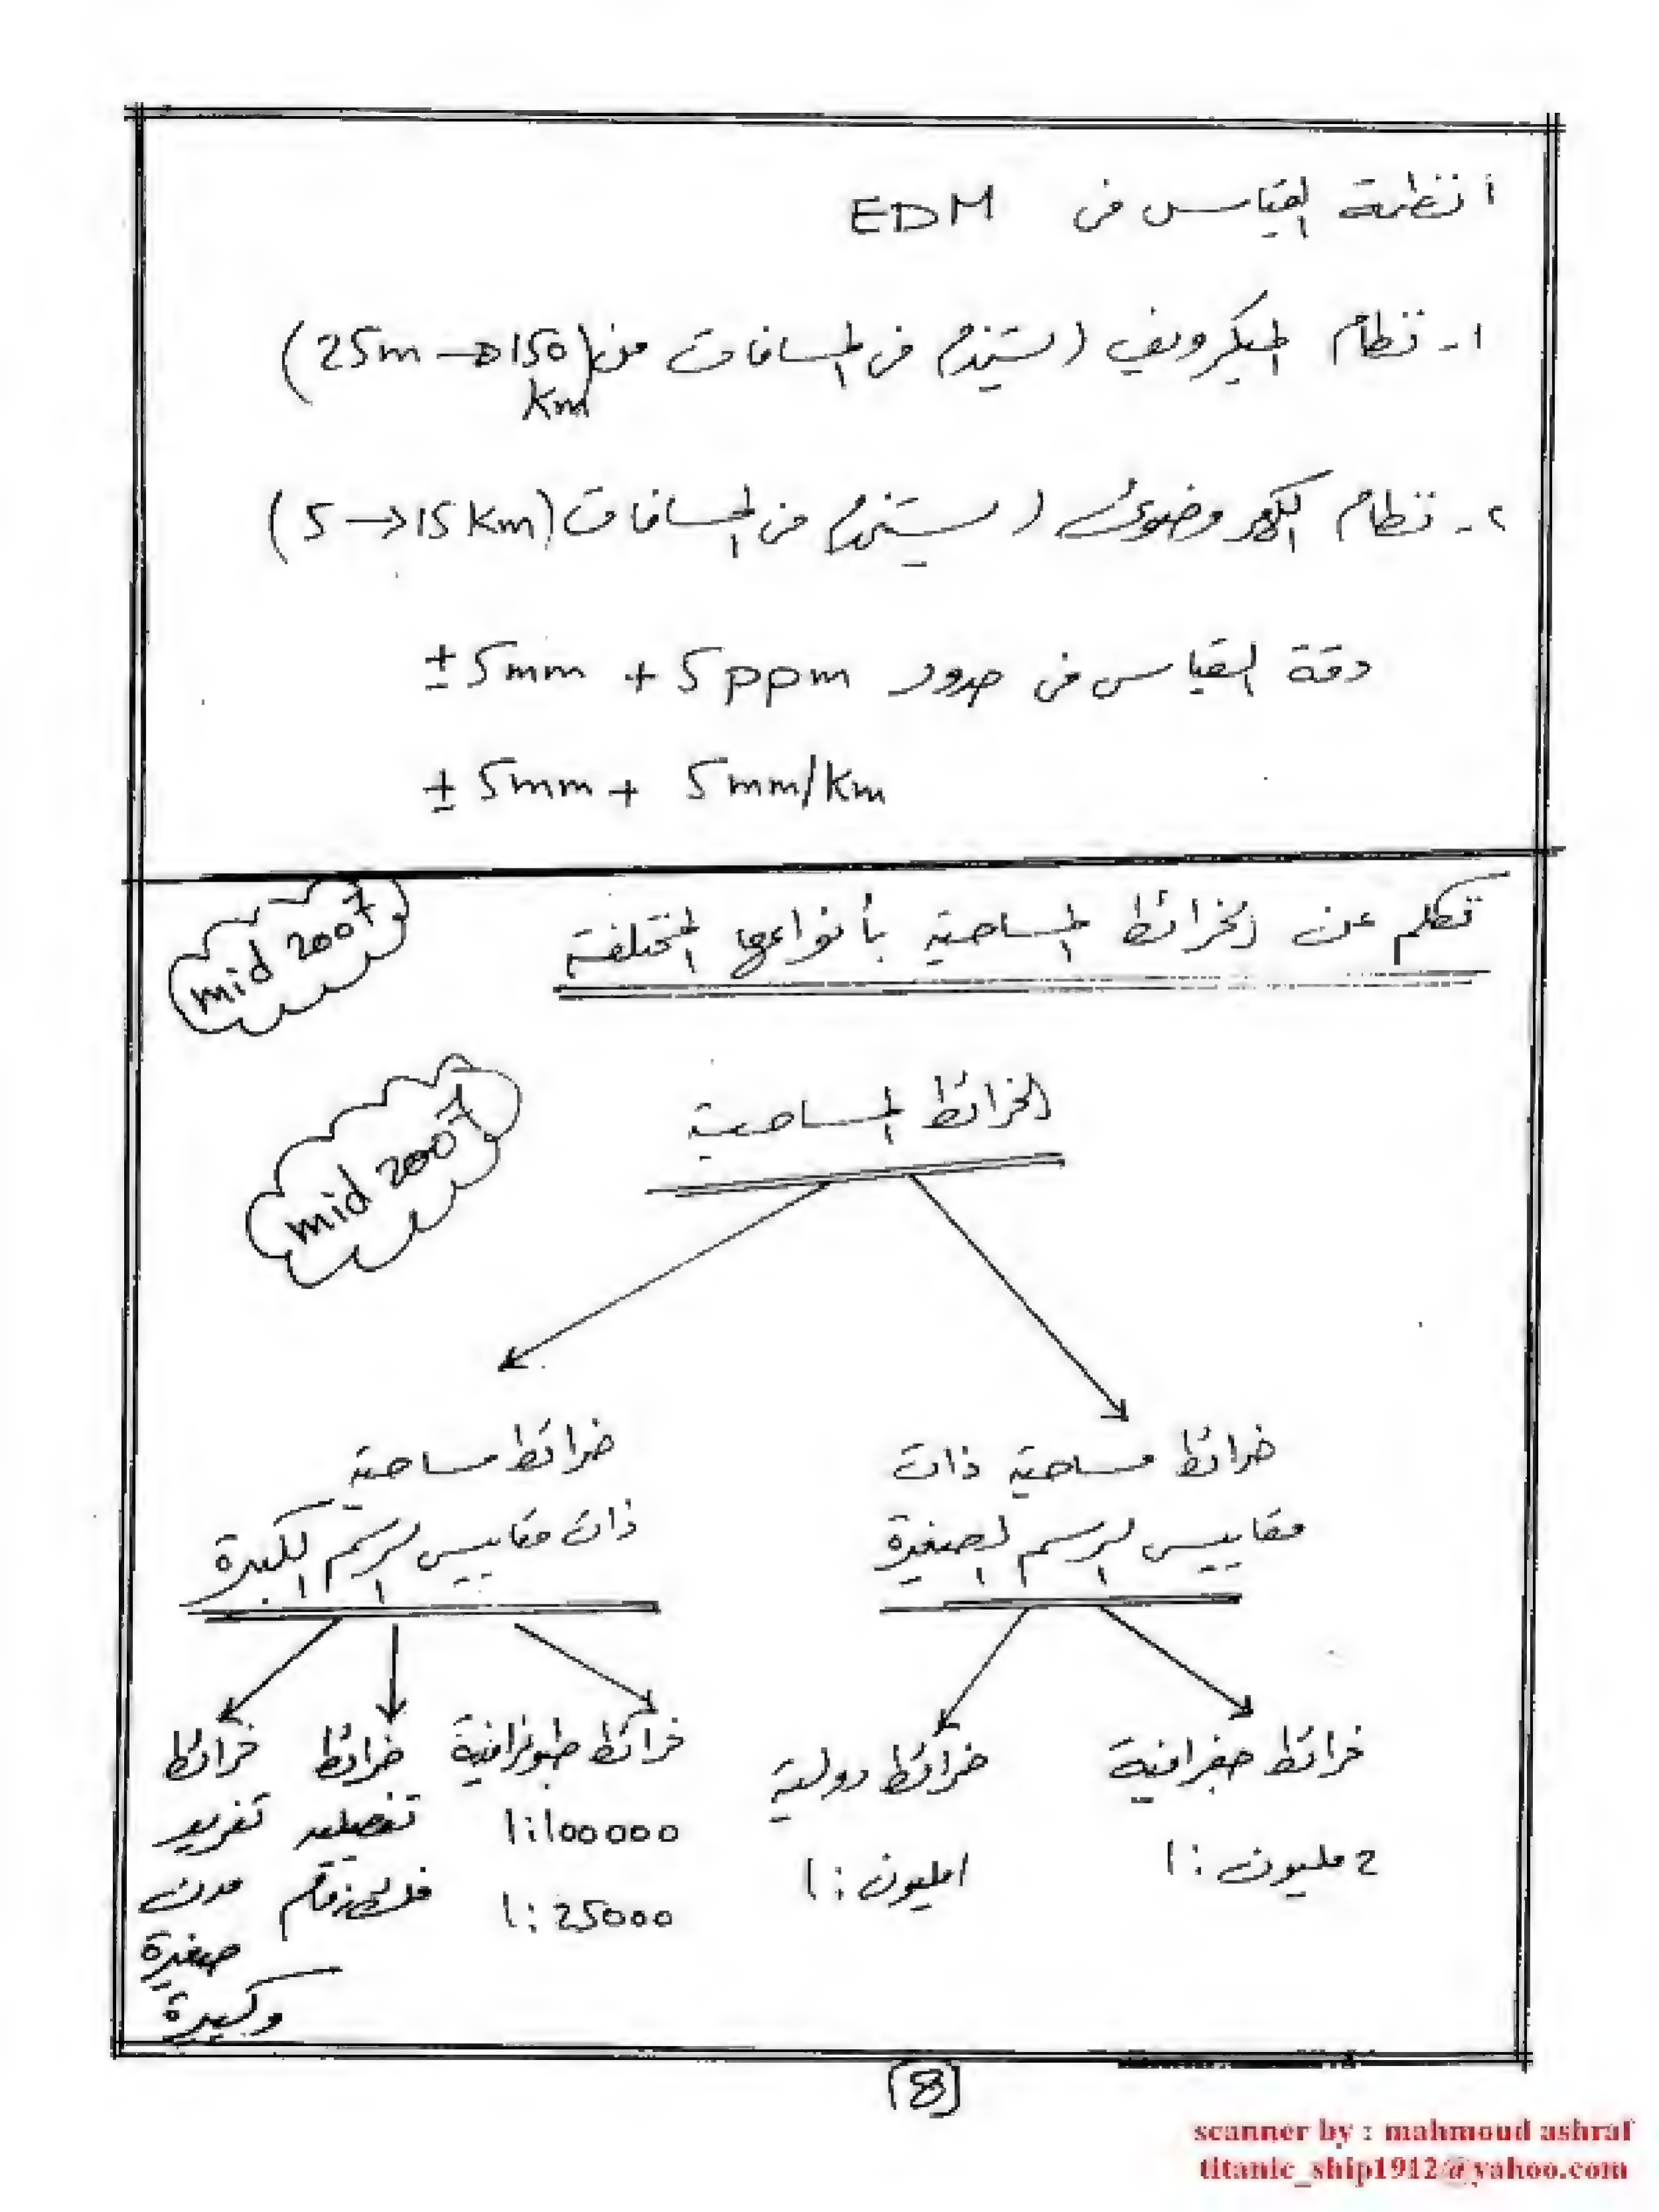 أنظمة القياس في EDM
١- نظام الميكروويف (يستخدم في المسافات من (25m → 150 Km)
٢- نظام الكهروضوئي (يستخدم في المسافات (5 → 15 Km)
دقة القياس في حدود ± 5mm + 5 ppm
± 5mm + 5 mm/Km
تكلم عن الخرائط المساحية بأنواعها المختلفة
mid 2007
الخرائط المساحية
mid 2007
خرائط مساحية ذات
مقاييس الرسم الصغيرة
خرائط مساحية
ذات مقاييس الرسم الكبيرة
خرائط جغرافية
2 مليون : 1
خرائط دولية
1 مليون : 1
خرائط طبوغرافية
1:100000
1:25000
خرائط
تفصيلية
خرائط
تفريد
مدن
صغيرة
وكبيرة
(8)
scanner by : mahmoud ashraf
titanic_ship1912@yahoo.com